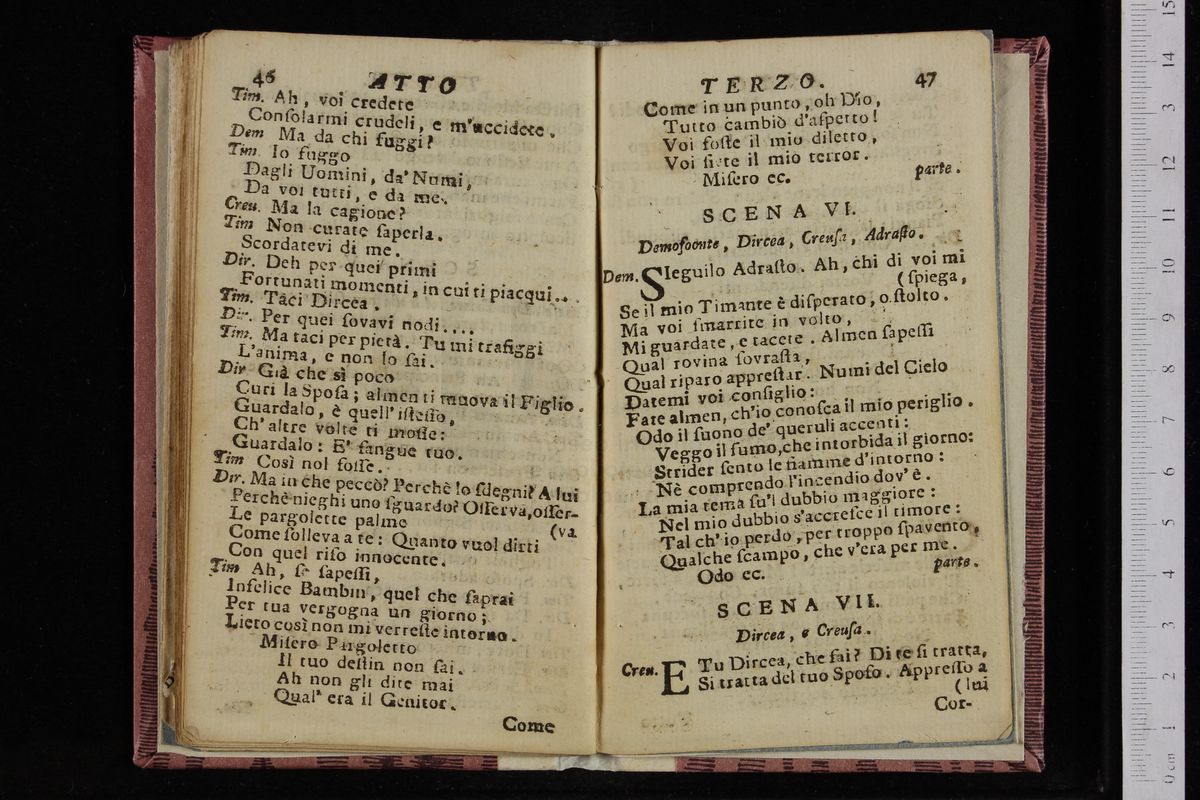 46 ATTO
Tim. Ah, voi credete
Conſolarmi crudeli, e m'uccidete.
Dem Ma da chi fuggi?
Tim. Io fuggo
Dagli Uomini, da' Numi,
Da voi tutti, e da me.
Creu. Ma la cagione?
Tim Non curate ſaperla.
Scordatevi di me.
Dir. Deh per quei primi
Fortunati momenti, in cui ti piacqui...
Tim. Taci Dircea.
Dir. Per quei ſovavi nodi....
Tim. Ma taci per pietà. Tu mi trafiggi
L'anima, e non lo ſai.
Dir Già che sì poco
Curi la Spoſa; almen ti muova il Figlio.
Guardalo, è quell' iſteſſo,
Ch' altre volte ti moſſe:
Guardalo: E' ſangue tuo.
Tim Così nol foſſe.
Dir. Ma in che peccò? Perchè lo ſdegni? A lui
Perchè nieghi uno ſguardo? Oſſerva, oſſer-
Le pargolette palme (va
Come ſolleva a te: Quanto vuol dirti
Con quel riſo innocente.
Tim Ah, ſe ſapeſſi,
Infelice Bambin, quel che ſaprai
Per tua vergogna un giorno;
Lieto così non mi verreſte intorno.
Miſero Pargoletto
Il tuo deſtin non ſai.
Ah non gli dite mai
Qual' era il Genitor.
Come
TERZO. 47
Come in un punto, oh Dio,
Tutto cambiò d'aſpetto!
Voi foſte il mio diletto,
Voi ſiete il mio terror.
Miſero ec. parte.
SCENA VI.
Demofoonte, Dircea, Creuſa, Adraſto.
Dem. SIeguilo Adraſto. Ah, chi di voi mi
(ſpiega,
Se il mio Timante è diſperato, o ſtolto.
Ma voi ſmarrite in volto,
Mi guardate, e tacete. Almen ſapeſſi
Qual rovina ſovraſta,
Qual riparo appreſtar. Numi del Cielo
Datemi voi conſiglio:
Fate almen, ch'io conoſca il mio periglio.
Odo il ſuono de' queruli accenti:
Veggo il fumo, che intorbida il giorno:
Strider ſento le fiamme d'intorno:
Nè comprendo l'incendio dov' è.
La mia tema fa'l dubbio maggiore:
Nel mio dubbio s'accreſce il timore:
Tal ch' io perdo, per troppo ſpavento,
Qualche ſcampo, che v'era per me.
Odo ec. parte.
SCENA VII.
Dircea, e Creuſa.
Creu. E Tu Dircea, che fai? Di te ſi tratta,
Si tratta del tuo Spoſo. Appreſſo a
(lui
Cor-
0 cm 1 2 3 4 5 6 7 8 9 10 11 12 13 14 15